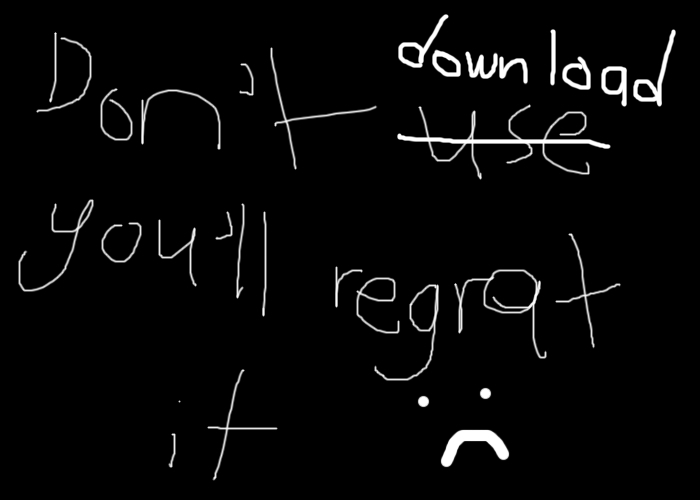 Don't use download
you'll regrat
it